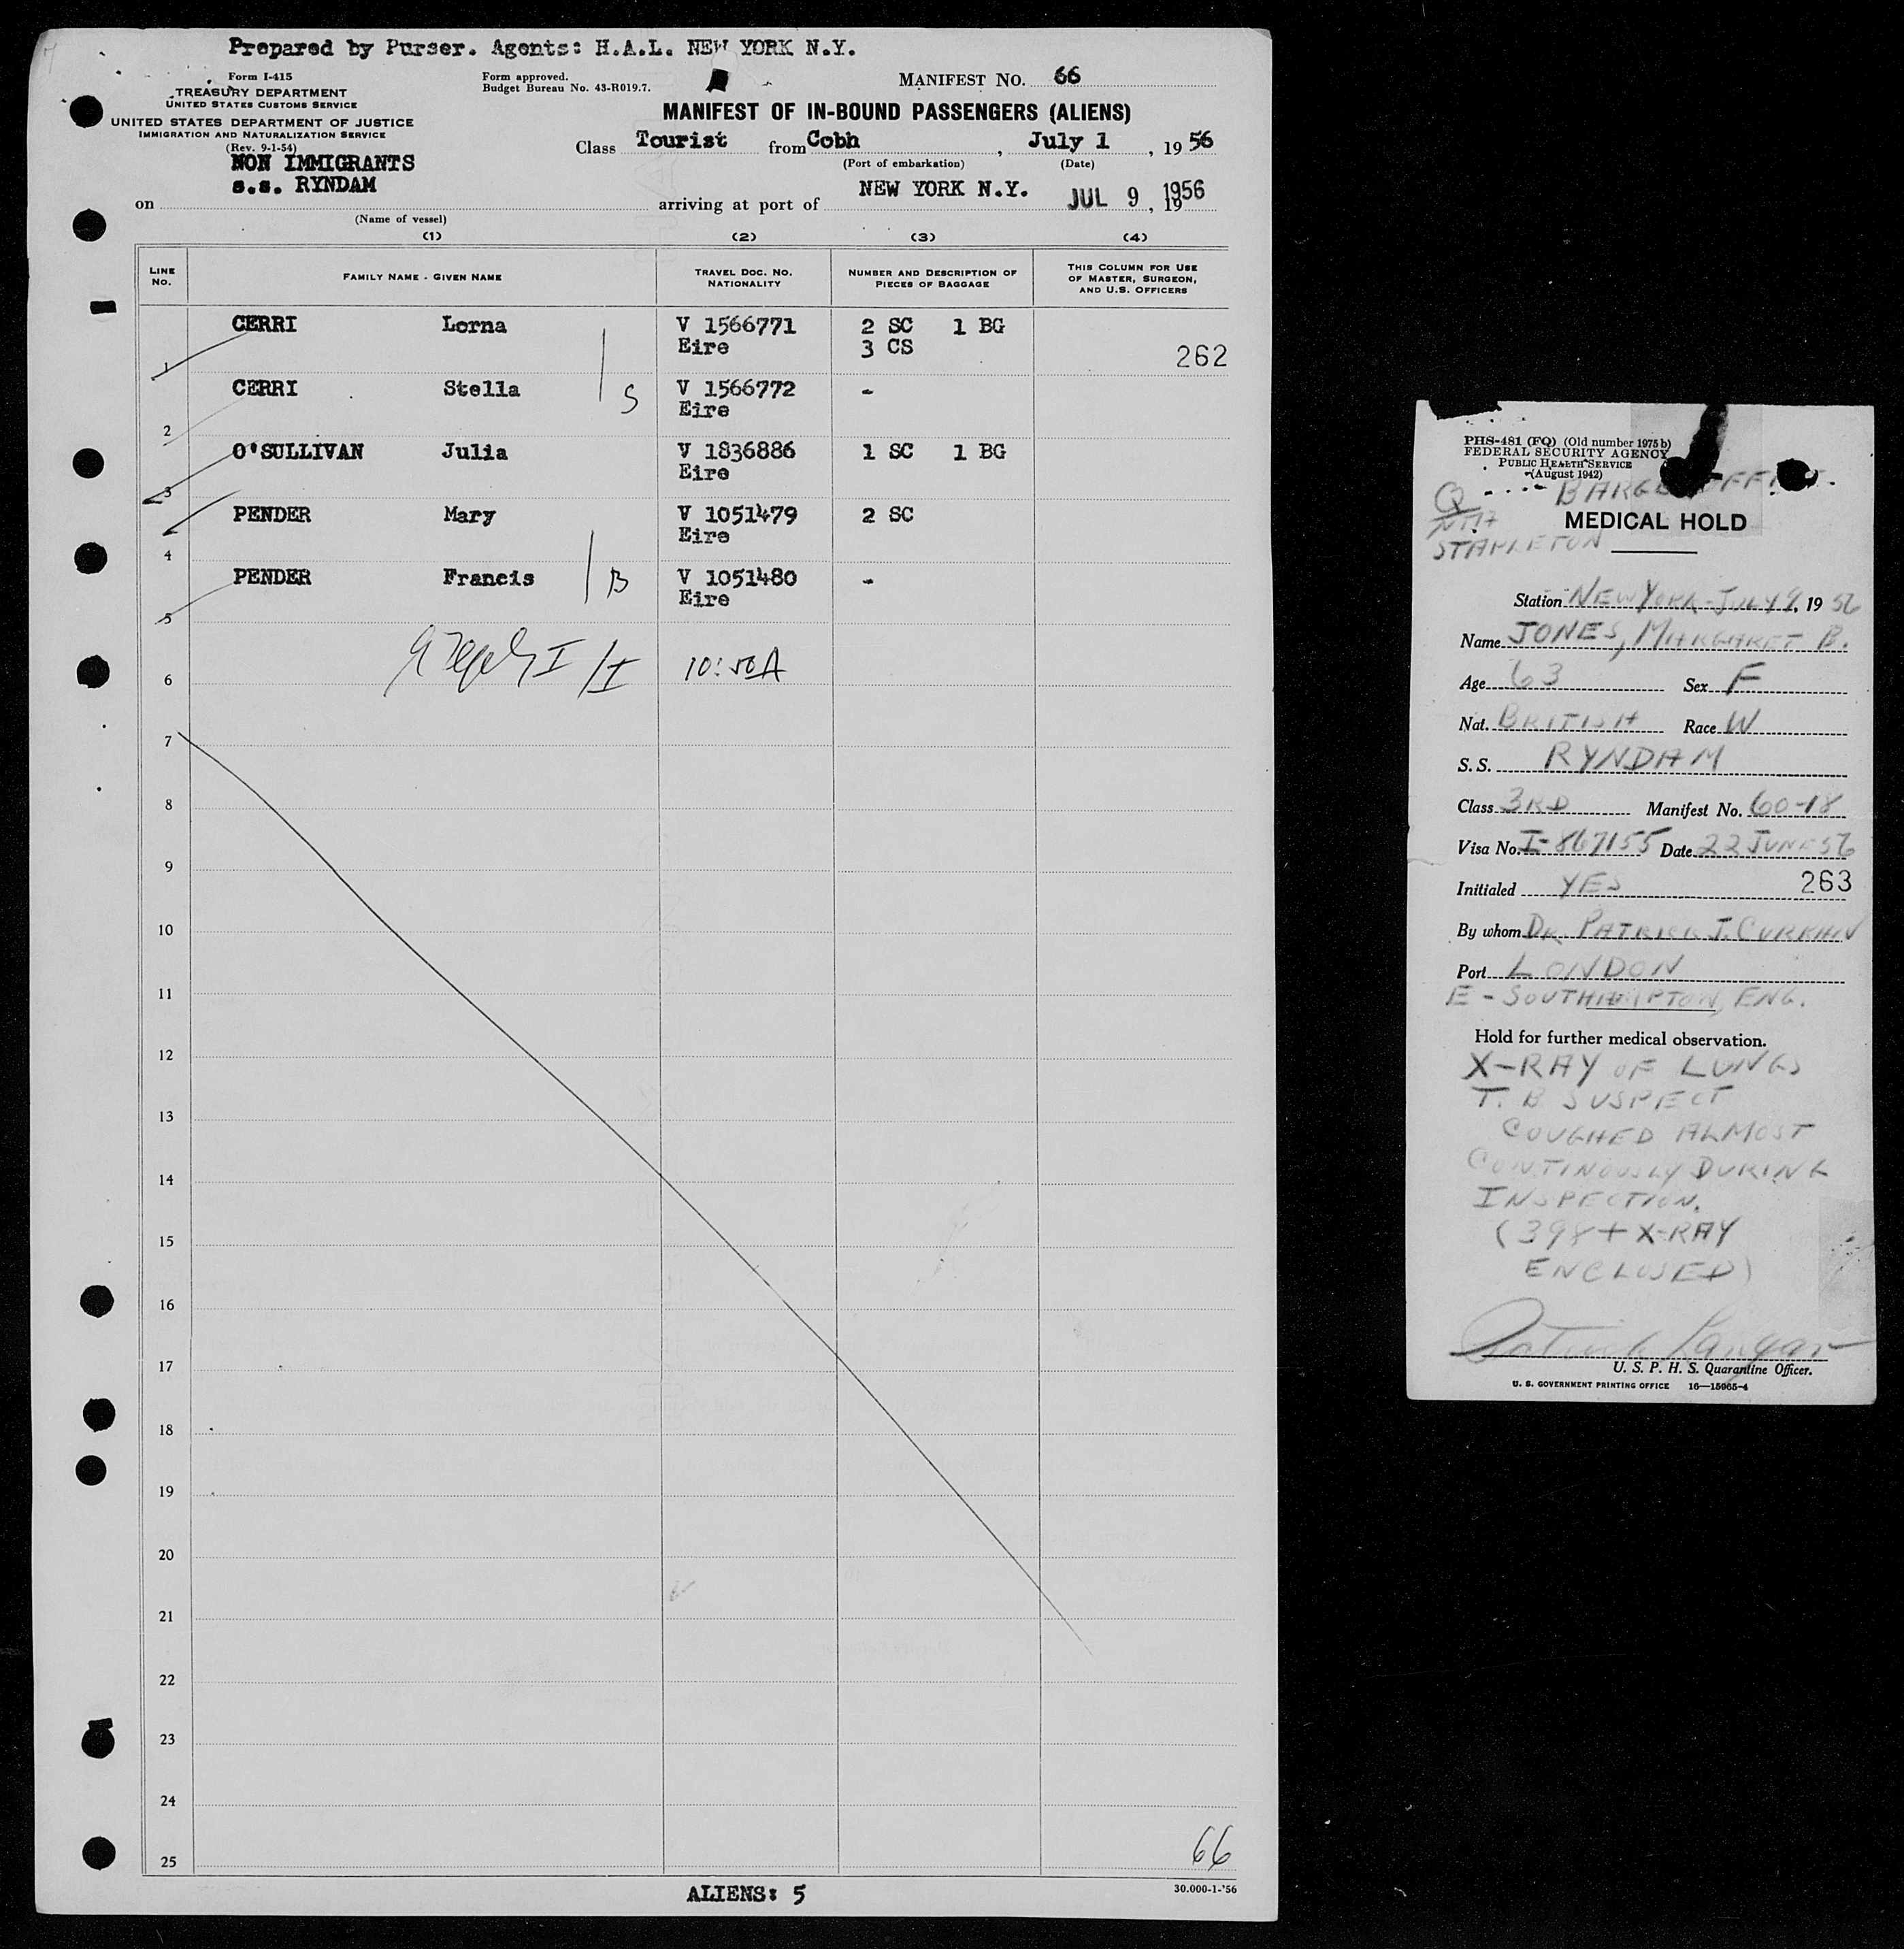 Prepared by Purser. Agents: H.A.L. NEW YORK N.Y.
Form I-415
TREASURY DEPARTMENT
UNITED STATES CUSTOMS SERVICE
UNITED STATES DEPARTMENT OF JUSTICE
IMMIGRATION AND NATURALIZATION SERVICE
(Rev. 9-1-54)
Form approved.
Budget Bureau No. 43-R019.7.
MANIFEST NO. 66
MANIFEST OF IN-BOUND PASSENGERS (ALIENS)
Class Tourist from Cobh, July 1, 19 56
(Port of embarkation) (Date)
NON IMMIGRANTS
s.s. RYNDAM
on
(Name of vessel)
arriving at port of NEW YORK N.Y. JUL 9, 1956
19
(1) (2) (3) (4)
LINE NO. FAMILY NAME - GIVEN NAME TRAVEL DOC. NO. NATIONALITY NUMBER AND DESCRIPTION OF PIECES OF BAGGAGE THIS COLUMN FOR USE OF MASTER, SURGEON, AND U.S. OFFICERS
CERRI Lorna V 1566771 2 SC 1 BG
1 Eire 3 CS 262
CERRI Stella S V 1566772 -
2 Eire
O'SULLIVAN Julia V 1836886 1 SC 1 BG
3 Eire
PENDER Mary V 1051479 2 SC
4 Eire
PENDER Francis B V 1051480 -
5 Eire
6 10:50A
7
8
9
10
11
12
13
14
15
16
17
18
19
20
21
22
23
24
25 66
ALIENS: 5
30.000-1-'56
PHS-481 (FQ) (Old number 1975b)
FEDERAL SECURITY AGENCY
PUBLIC HEALTH SERVICE
(August 1942)
Q
STAPLETON
MEDICAL HOLD
Station NEW YORK - JULY 9, 19 56
Name JONES, MARGARET B.
Age 63 Sex F
Nat. BRITISH Race W
S. S. RYNDAM
Class 3RD Manifest No. 60-18
Visa No. I-867155 Date 22 JUNE 56
Initialed YES 263
By whom DR PATRICK J.
Port LONDON
E - SOUTHAMPTON, ENG.
Hold for further medical observation.
X-RAY OF LUNGS
T. B SUSPECT
COUGHED ALMOST
CONTINOUSLY DURING
INSPECTION.
(398 + X-RAY
ENCLOSED)
U. S. P. H. S. Quarantine Officer.
U. S. GOVERNMENT PRINTING OFFICE 16—15965-4